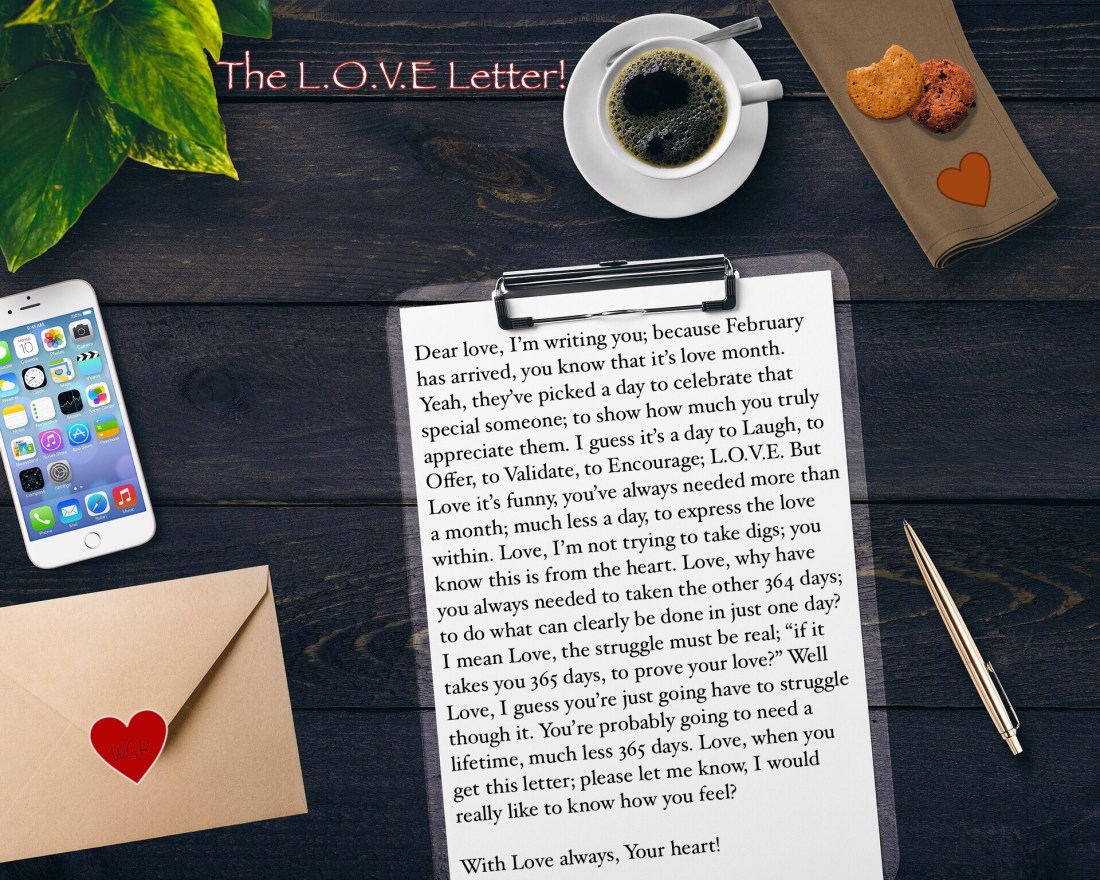 The L.O.V.E Letter!
Dear love, I'm writing you; because February
has arrived, you know that it's love month.
Yeah, they've picked a day to celebrate that
special someone; to show how much you truly
appreciate them. I guess it's a day to Laugh, to
Offer, to Validate, to Encourage; L.O.V.E. But
Love it's funny, you've always needed more than
a month; much less a day, to express the love
within. Love, I'm not trying to take digs; you
know this is from the heart. Love, why have
you always needed to taken the other 364 days;
to do what can clearly be done in just one day?
I mean Love, the struggle must be real; “if it
takes you 365 days, to prove your love?” Well
Love, I guess you're just going have to struggle
though it. You're probably going to need a
lifetime, much less 365 days. Love, when you
get this letter; please let me know, I would
really like to know how you feel?
With Love always, Your heart!
9:41 AM
100%
10
Calendar
Photos
Camera
Phone
Mail
Safari
Music
WCK